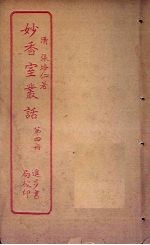 清 張培仁著
妙香室叢話
第四冊
進步書
局校印